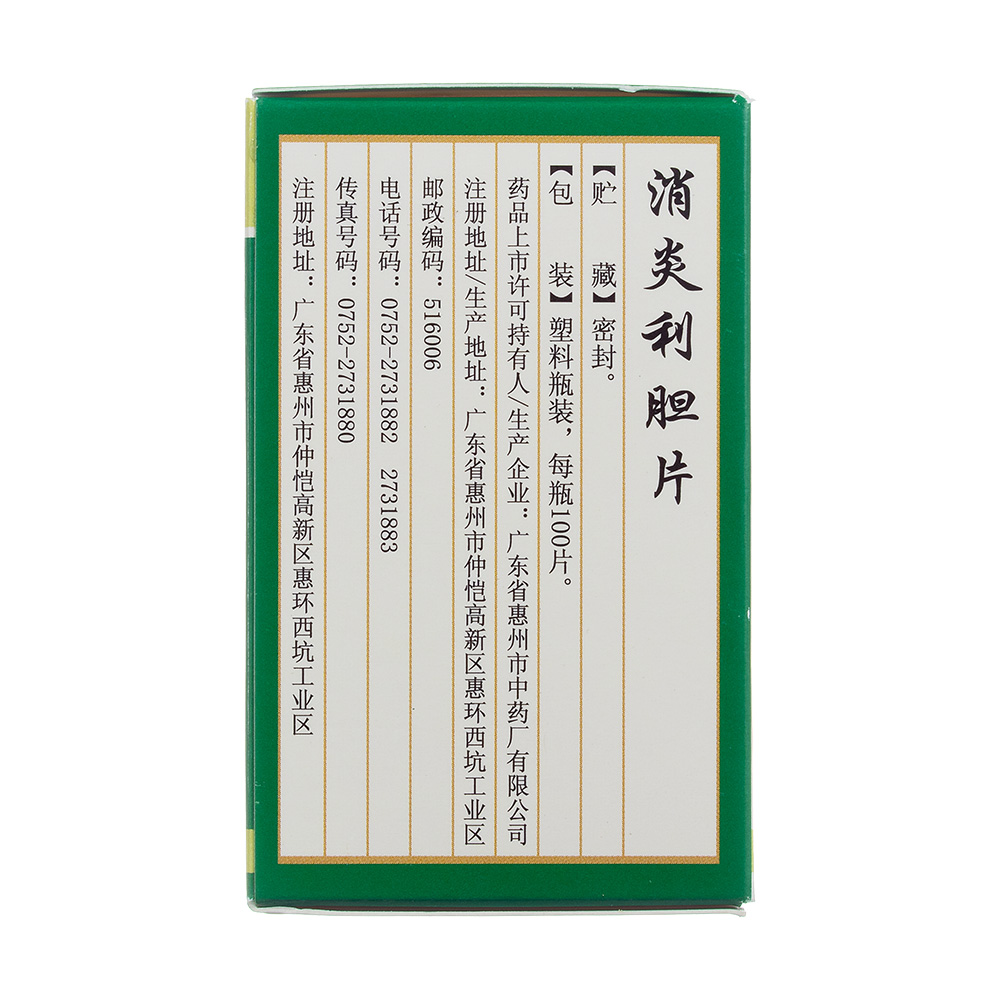 消炎利胆片
【贮　藏】密封。
【包　装】塑料瓶装，每瓶100片。
药品上市许可持有人/生产企业：广东省惠州市中药厂有限公司
注册地址/生产地址：广东省惠州市仲恺高新区惠环西坑工业区
邮政编码：516006
电话号码：0752-2731882　2731883
传真号码：0752-2731880
注册地址：广东省惠州市仲恺高新区惠环西坑工业区